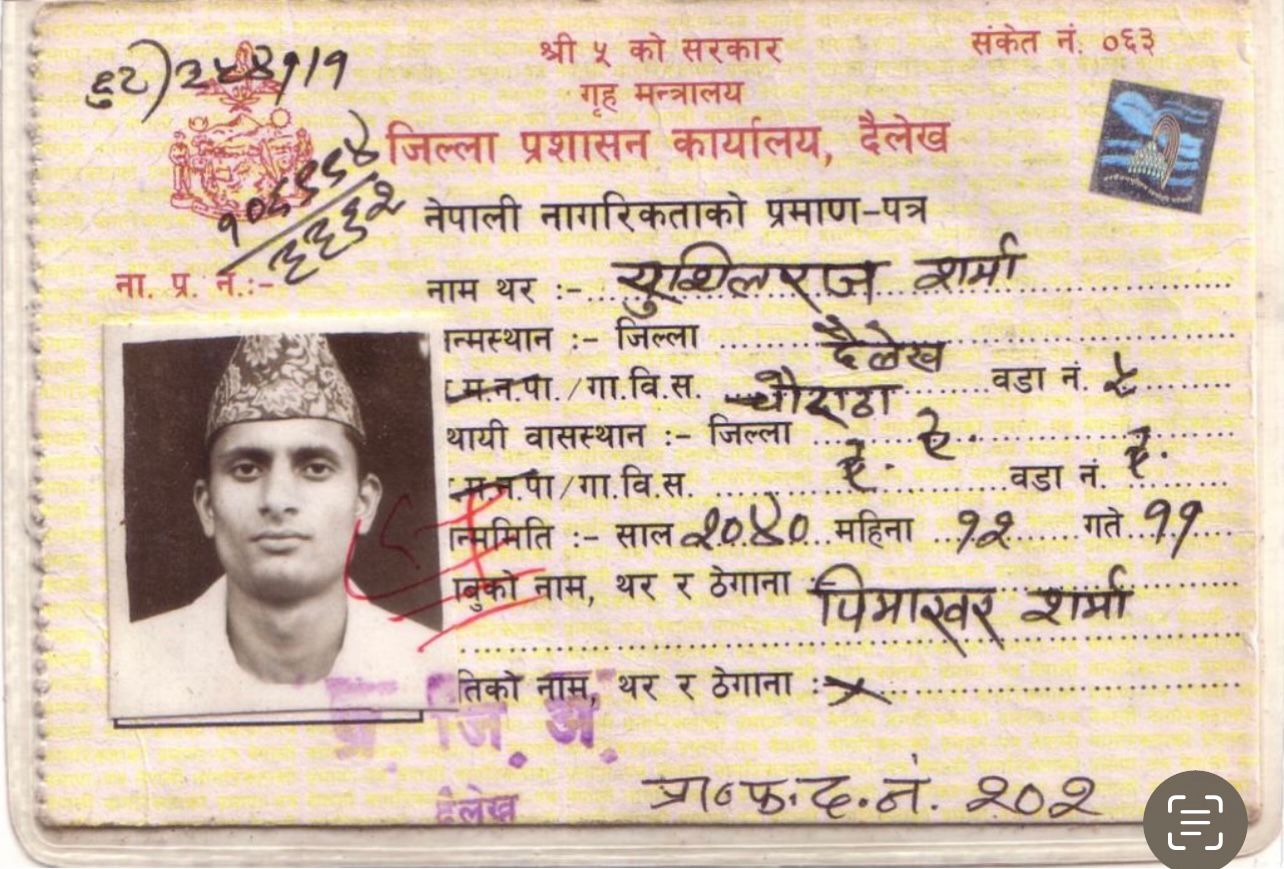 श्री ५ को सरकार
संकेत नं. ०६३
गृह मन्त्रालय
जिल्ला प्रशासन कार्यालय, दैलेख
नेपाली नागरिकताको प्रमाण-पत्र
ना. प्र. नं.:-
नाम थर :- युशिलराज शर्मा
न्मस्थान :- जिल्ला दैलेख
म.न.पा./गा.वि.स. चौराठा वडा नं. ५
थायी वासस्थान :- जिल्ला ऐ.
म.न.पा/गा.वि.स. ऐ. वडा नं. ऐ.
न्ममिति :- साल २०४० महिना १२ गते ११
ाबुको नाम, थर र ठेगाना :- पिमाश्वर शर्मा
तिको नाम, थर र ठेगाना :- x
प्र. जि. अ.
दैलेख
प्रा०फ.द.नं. २०२